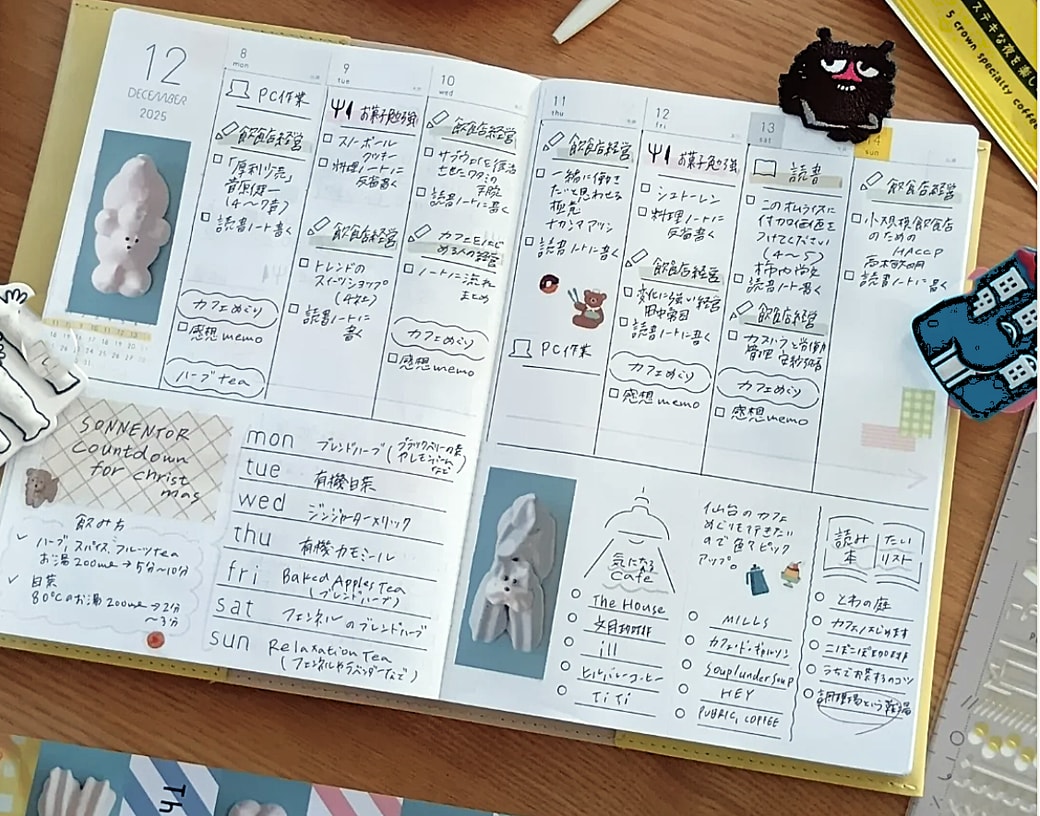 12
DECEMBER
2025
8
mon
PC作業
飲食店経営
「厚利少売」
菅原健一
(4〜7章)
読書ノート書く
カフェめぐり
感想memo
ハーブtea
9
tue
お菓子勉強
スノーボール
クッキー
料理ノートに
反省書く
飲食店経営
トレンドの
スイーツショップ
読書ノートに
書く
10
wed
飲食店経営
サブウェイを復活
させたワタミの
手腕
読書ノートに書く
カフェをはじ
める人の経営
ノートに流れ
まとめ
カフェめぐり
感想memo
11
thu
飲食店経営
一緒に働き
たいと思わせる
極意
ナカシマアツシ
読書ノートに書く
PC作業
12
fri
お菓子勉強
シュトーレン
料理ノートに
反省書く
飲食店経営
変化に強い経営
読書ノートに書く
カフェめぐり
感想memo
13
sat
読書
このオムライスに
付加価値を
つけてください
(4〜5)
柿内尚文
読書ノート書く
飲食店経営
カスハラと労働
管理
カフェめぐり
感想memo
sun
飲食店経営
小規模飲食店
のための
HACCP
読書ノートに書く
SONNENTOR
countdown
for christ
mas
飲み方
ハーブ、スパイス、フルーツtea
お湯200ml→5分〜10分
白茶
80℃のお湯200ml→2分
〜3分
mon ブレンドハーブ(ブラックベリーの葉
やレモンバームなど)
tue 有機白茶
wed ジンジャーターメリック
thu 有機カモミール
fri Baked Apples Tea
(ブレンドハーブ)
sat フェンネルのブレンドハーブ
sun Relaxation Tea
(フェンネルやラベンダーなど)
気になる
Cafe
The House
ill
ヒルバレーコーヒー
Ti Ti
仙台のカフェ
めぐりも行きたい
ので色々ピック
アップ。
MILLS
Soupundersoup
HEY
PUBLIC COFFEE
読みたい
本リスト
とわの庭
カフェはじめます
うちでお茶する のコツ
調理場という戦場
ステキな夜を楽し
5 crown specialty coffee
Th